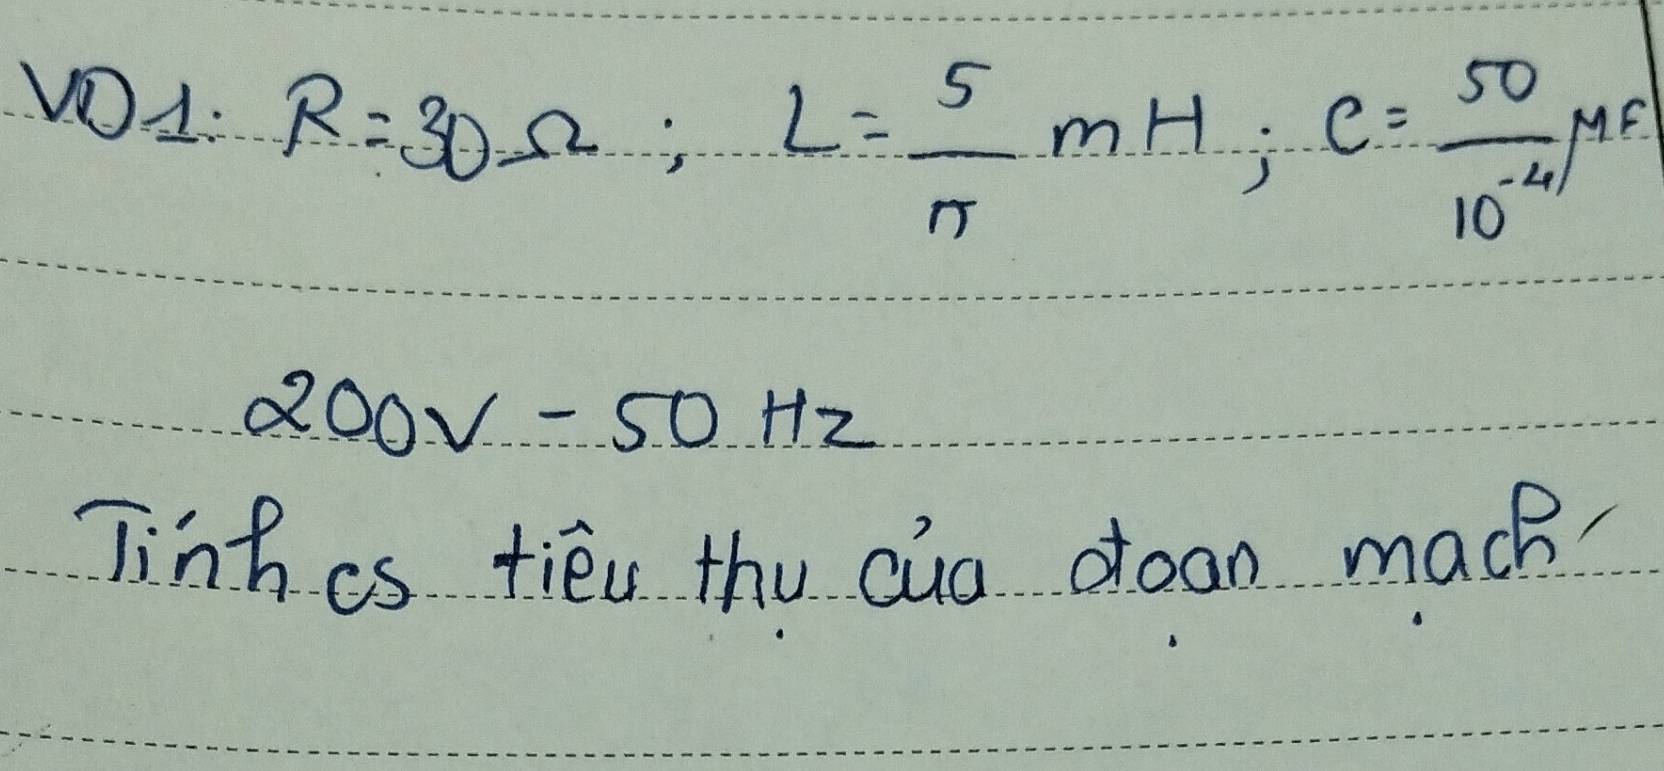 VD1: R = 30Ω ; L = 5/π mH ; C = 50/10^-4 μF
200V - 50 Hz
Tính cs tiêu thụ của đoạn mạch